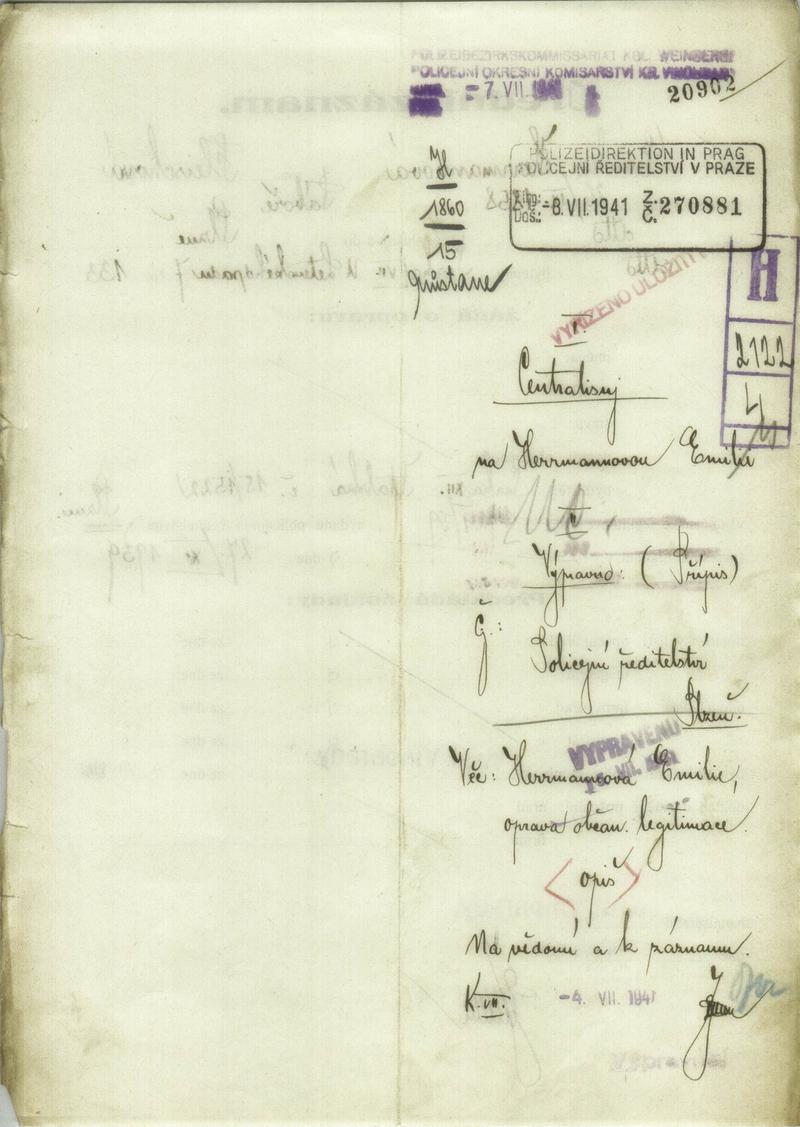 POLIZEIBEZIRKSKOMMISSARIAT KGL. WEINBERGE
POLICEJNÍ OKRESNÍ KOMISARSTVÍ KR. VINOHRADY
- 7. VII. 1941
20902
H
1860
15
POLIZEIDIREKTION IN PRAG
POLICEJNÍ ŘEDITELSTVÍ V PRAZE
Došl.: -8. VII. 1941 Z. Č. 270881
zůstane
VYŘÍZENO ULOŽITI
H
2122
4
I.
Centralisuj
na Herrmannovou Emilii
II.
Výpravno: (Přípis)
Č.:
Policejní ředitelství
Plzeň.
VYPRAVENO
VII. 1941
Věc: Herrmannová Emilie,
oprava občan. legitimace.
opiš
Na vědomí a k záznamu.
K. VII. -4. VII. 1941